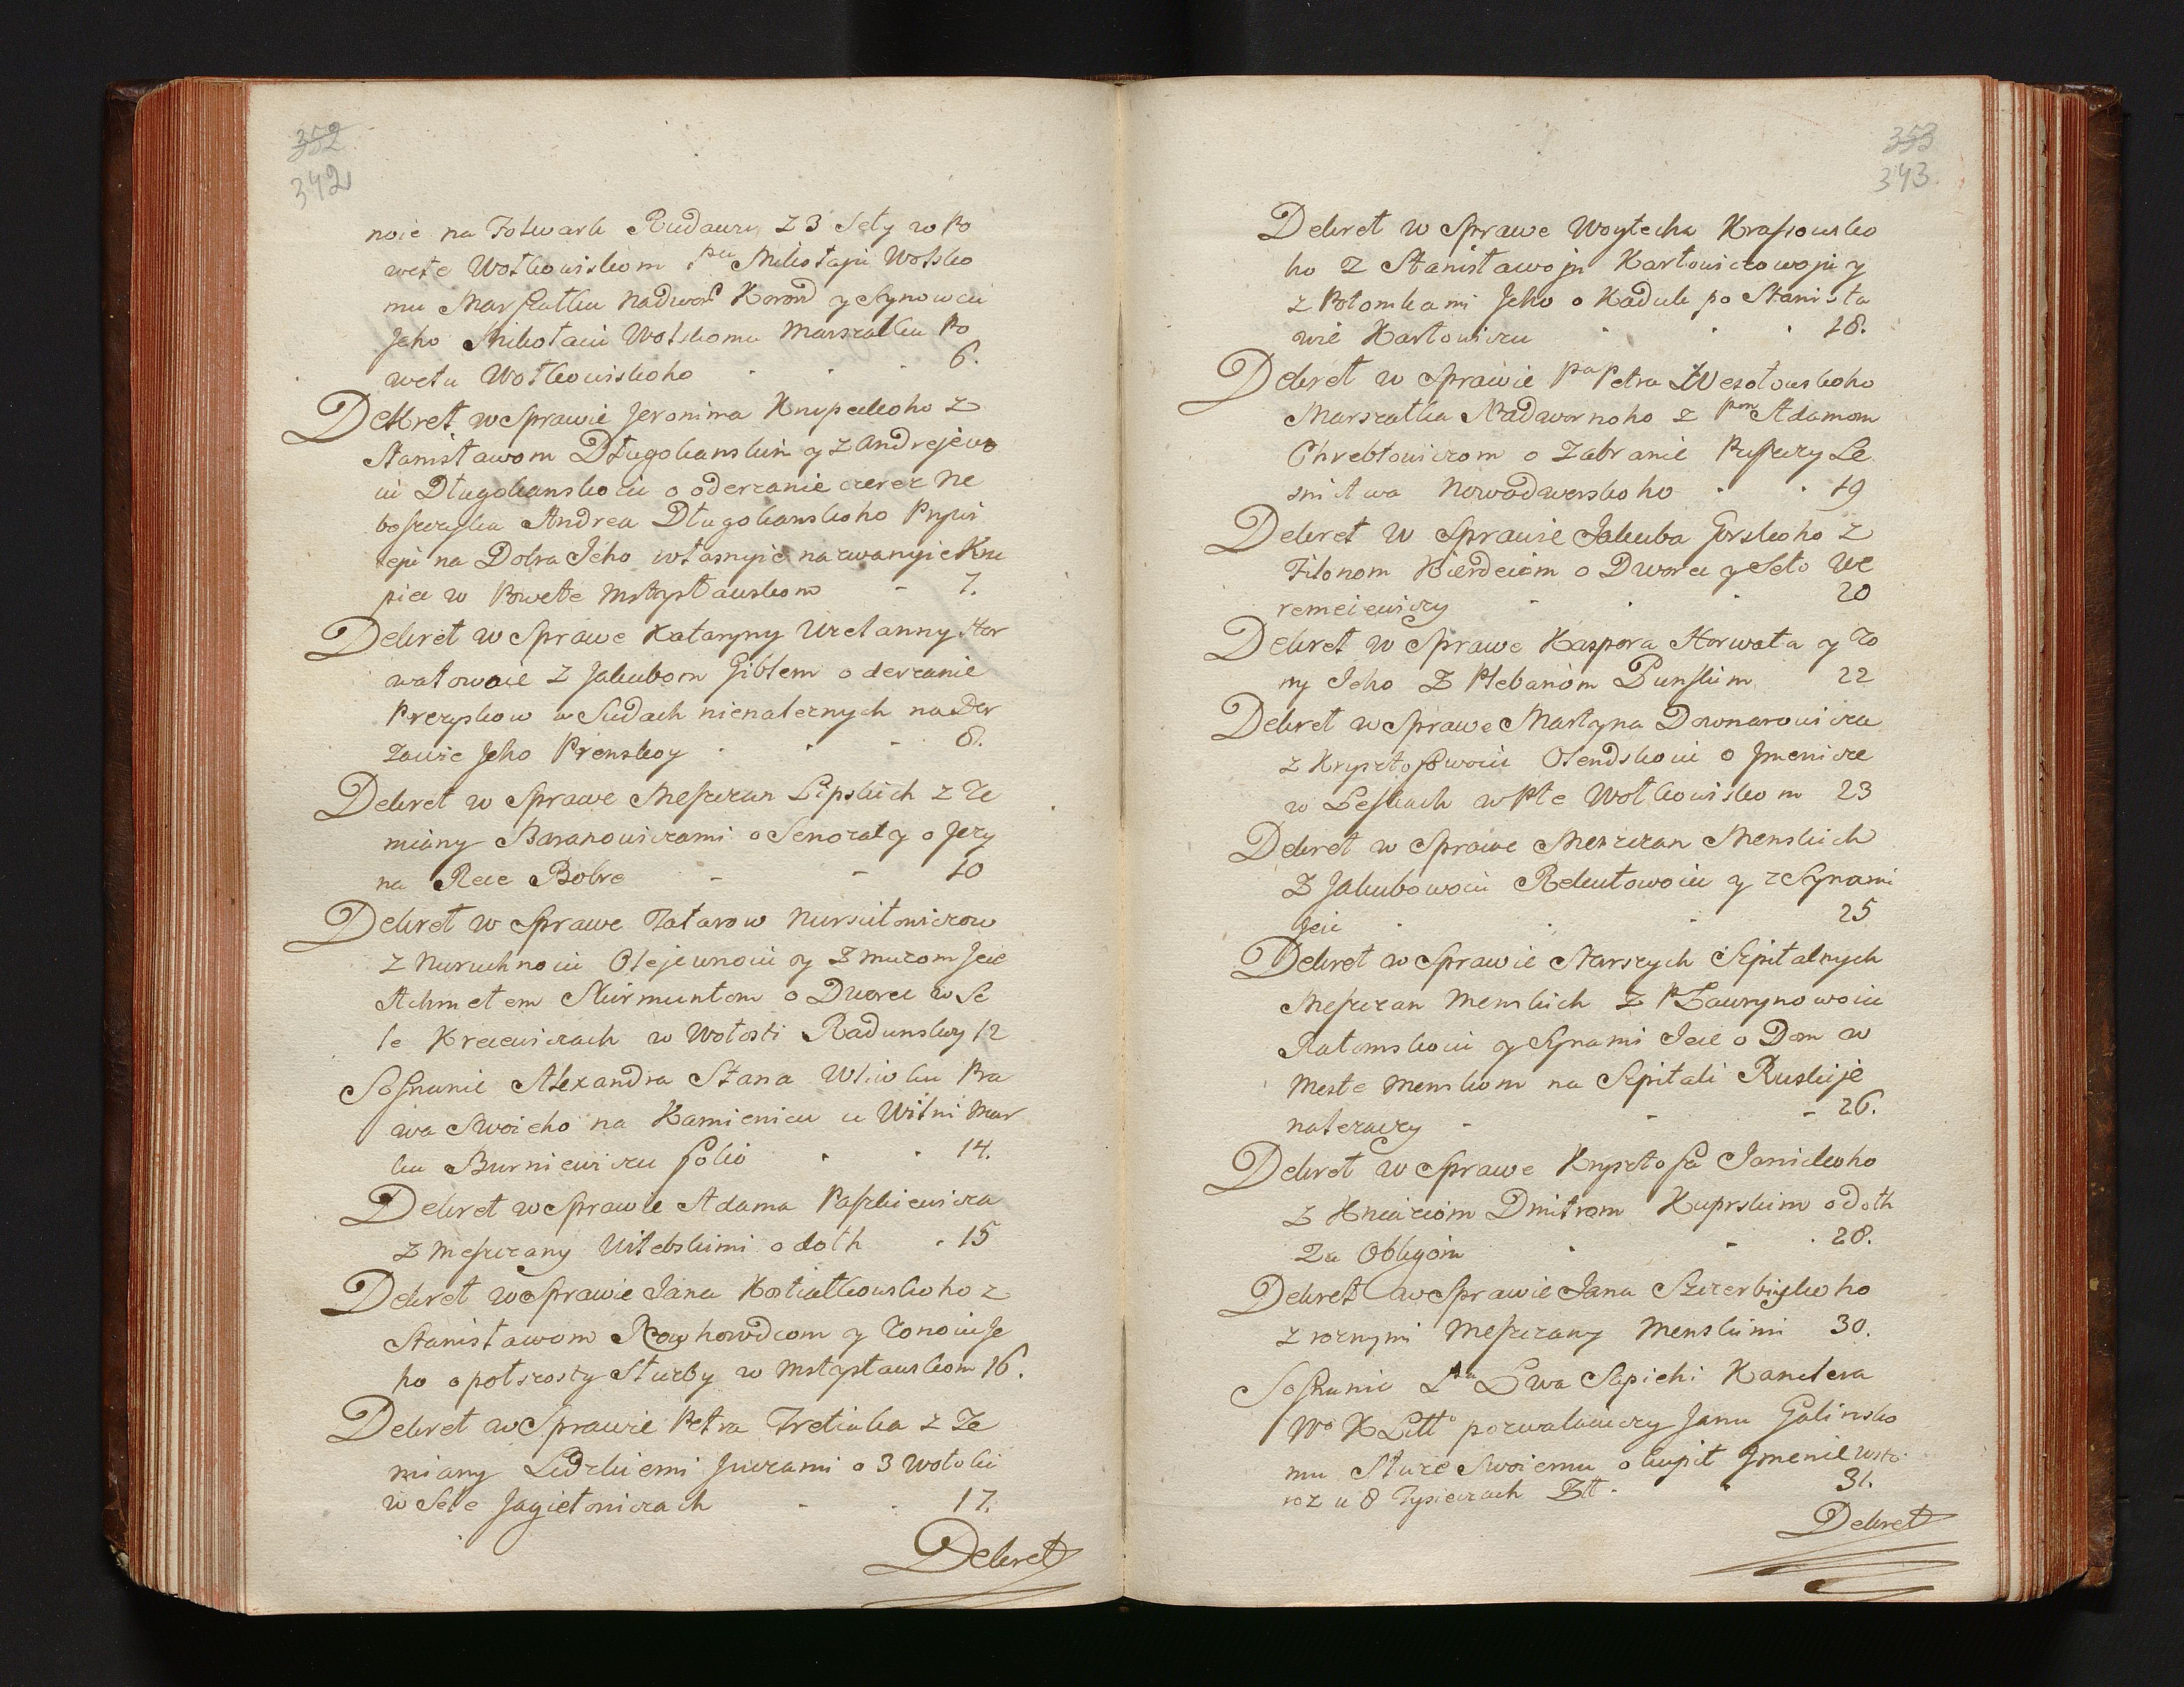 352
342
noie na Folwark Rudawu, z 3 Seły w Po
wete Wołkowiskom pu Mikołaju Wolsko
mu Marszałku Nadwor Koron y Synowcu
Jeho Mikołaiu Wolskomu Marszałku Po
wetu Wołkowiskoho 6.
Dekret w Sprawie Jeronima Knipeckoho z
Stanisławom Długokanskim y z Andrejewo
iu Długokanskoiu o oderzanie czerez Ne
boszczyka Andrea Długokanskoho Prywi
leju na Dobra Jeho własnyie nazwanyie Kni
picz w Powete Mstysławskom - 7.
Dekret w Sprawe Kataryny Uzelanny Hor
watowoie z Jakubom Giblem o derzanie
Przezyskow w Sudach nienaleznych na Der
zawie Jeho Prenskoy 8.
Dekret w Sprawe Meszczan Lipskich z Ze
miany Baranowiczami o Senozaty o Jezy
na Rece Bobre - - 10
Dekret w Sprawe Tatarow Nursułowiczow
z Nuruchnoiu Olejewnoiu y z Muzom Jeie
Achmetem Nurmuntom o Dworec w Se
le Kreczewiczach w Wołosti Radunskoy 12
Soznanie Alexandra Stana Wliwku Pra
wa Swoieho na Kamienicu u Wilni Mar
ku Burniewiczu folio 14.
Dekret w Sprawie Adama Paszkiewicza
z Meszczany Witebskimi o dolh - 15
Dekret w Sprawie Jana Kostiałkowskoho z
Stanisławom Rowhowdom y Zonoiu Je
ho o połszosty Służby w Mstysławskom 16.
Dekret w Sprawie Petra Tretiaka z Ze
miany Lidzkiemi Juczami o 3 Wołoki
w Sele Jagiełowiczach - 17.
Dekret
353
343.
Dekret w Sprawe Woytecha Krassowsko
ho z Stanisławoju Karłowiczowoju y
z Potomkami Jeho o Kaduk po Stanisła
wie Karłowiczu 18.
Dekret w Sprawie Pa Petra Wesołowskoho
Marszałka Nadwornoho z Pom Adamom
Chrebtowiczom o Zabranie Puszczy Le
snictwa Nowodworskoho 19
Dekret w Sprawie Jakuba Gorskoho z
Filonom Kierdeiom o Dworec y Seło We
remeiewiczy 20
Dekret w Sprawe Kaspora Horwata y Zo
ny Jeho z Plebanom Punskim 22
Dekret w Sprawe Martyna Downarowicza
z Krysztofowoiu Olendskoiu o Jmenicze
w Leskach w Pte Wołkowiskom 23
Dekret w Sprawe Meszczan Menskich
z Jakubowoiu Rekutowoiu y z Synami
Jeie 25
Dekret w Sprawie Starszych Szpitalnych
Meszczan Menskich z P Ławrynowoiu
Ratomskoiu y Synami Jeie o Dom w
Meste Menskom na Szpitali Ruskije
nalezaczy - - 26.
Dekret w Sprawe Krysztofa Janickoho
z Kniaziom Dmitrom Kuprskim o dolh
Za Obligom 28.
Dekret w Sprawie Jana Szczerbinskoho
z roznymi Meszczany Menskimi 30.
Soznanie Lwa Sapiehi Kanclera
Wo X Litto pozwalaiuczy Janu Galinsko
mu Słuze Swoiemu okupit Jmenie
roz u 8 Tysiaczach Złt. 31.
Dekret